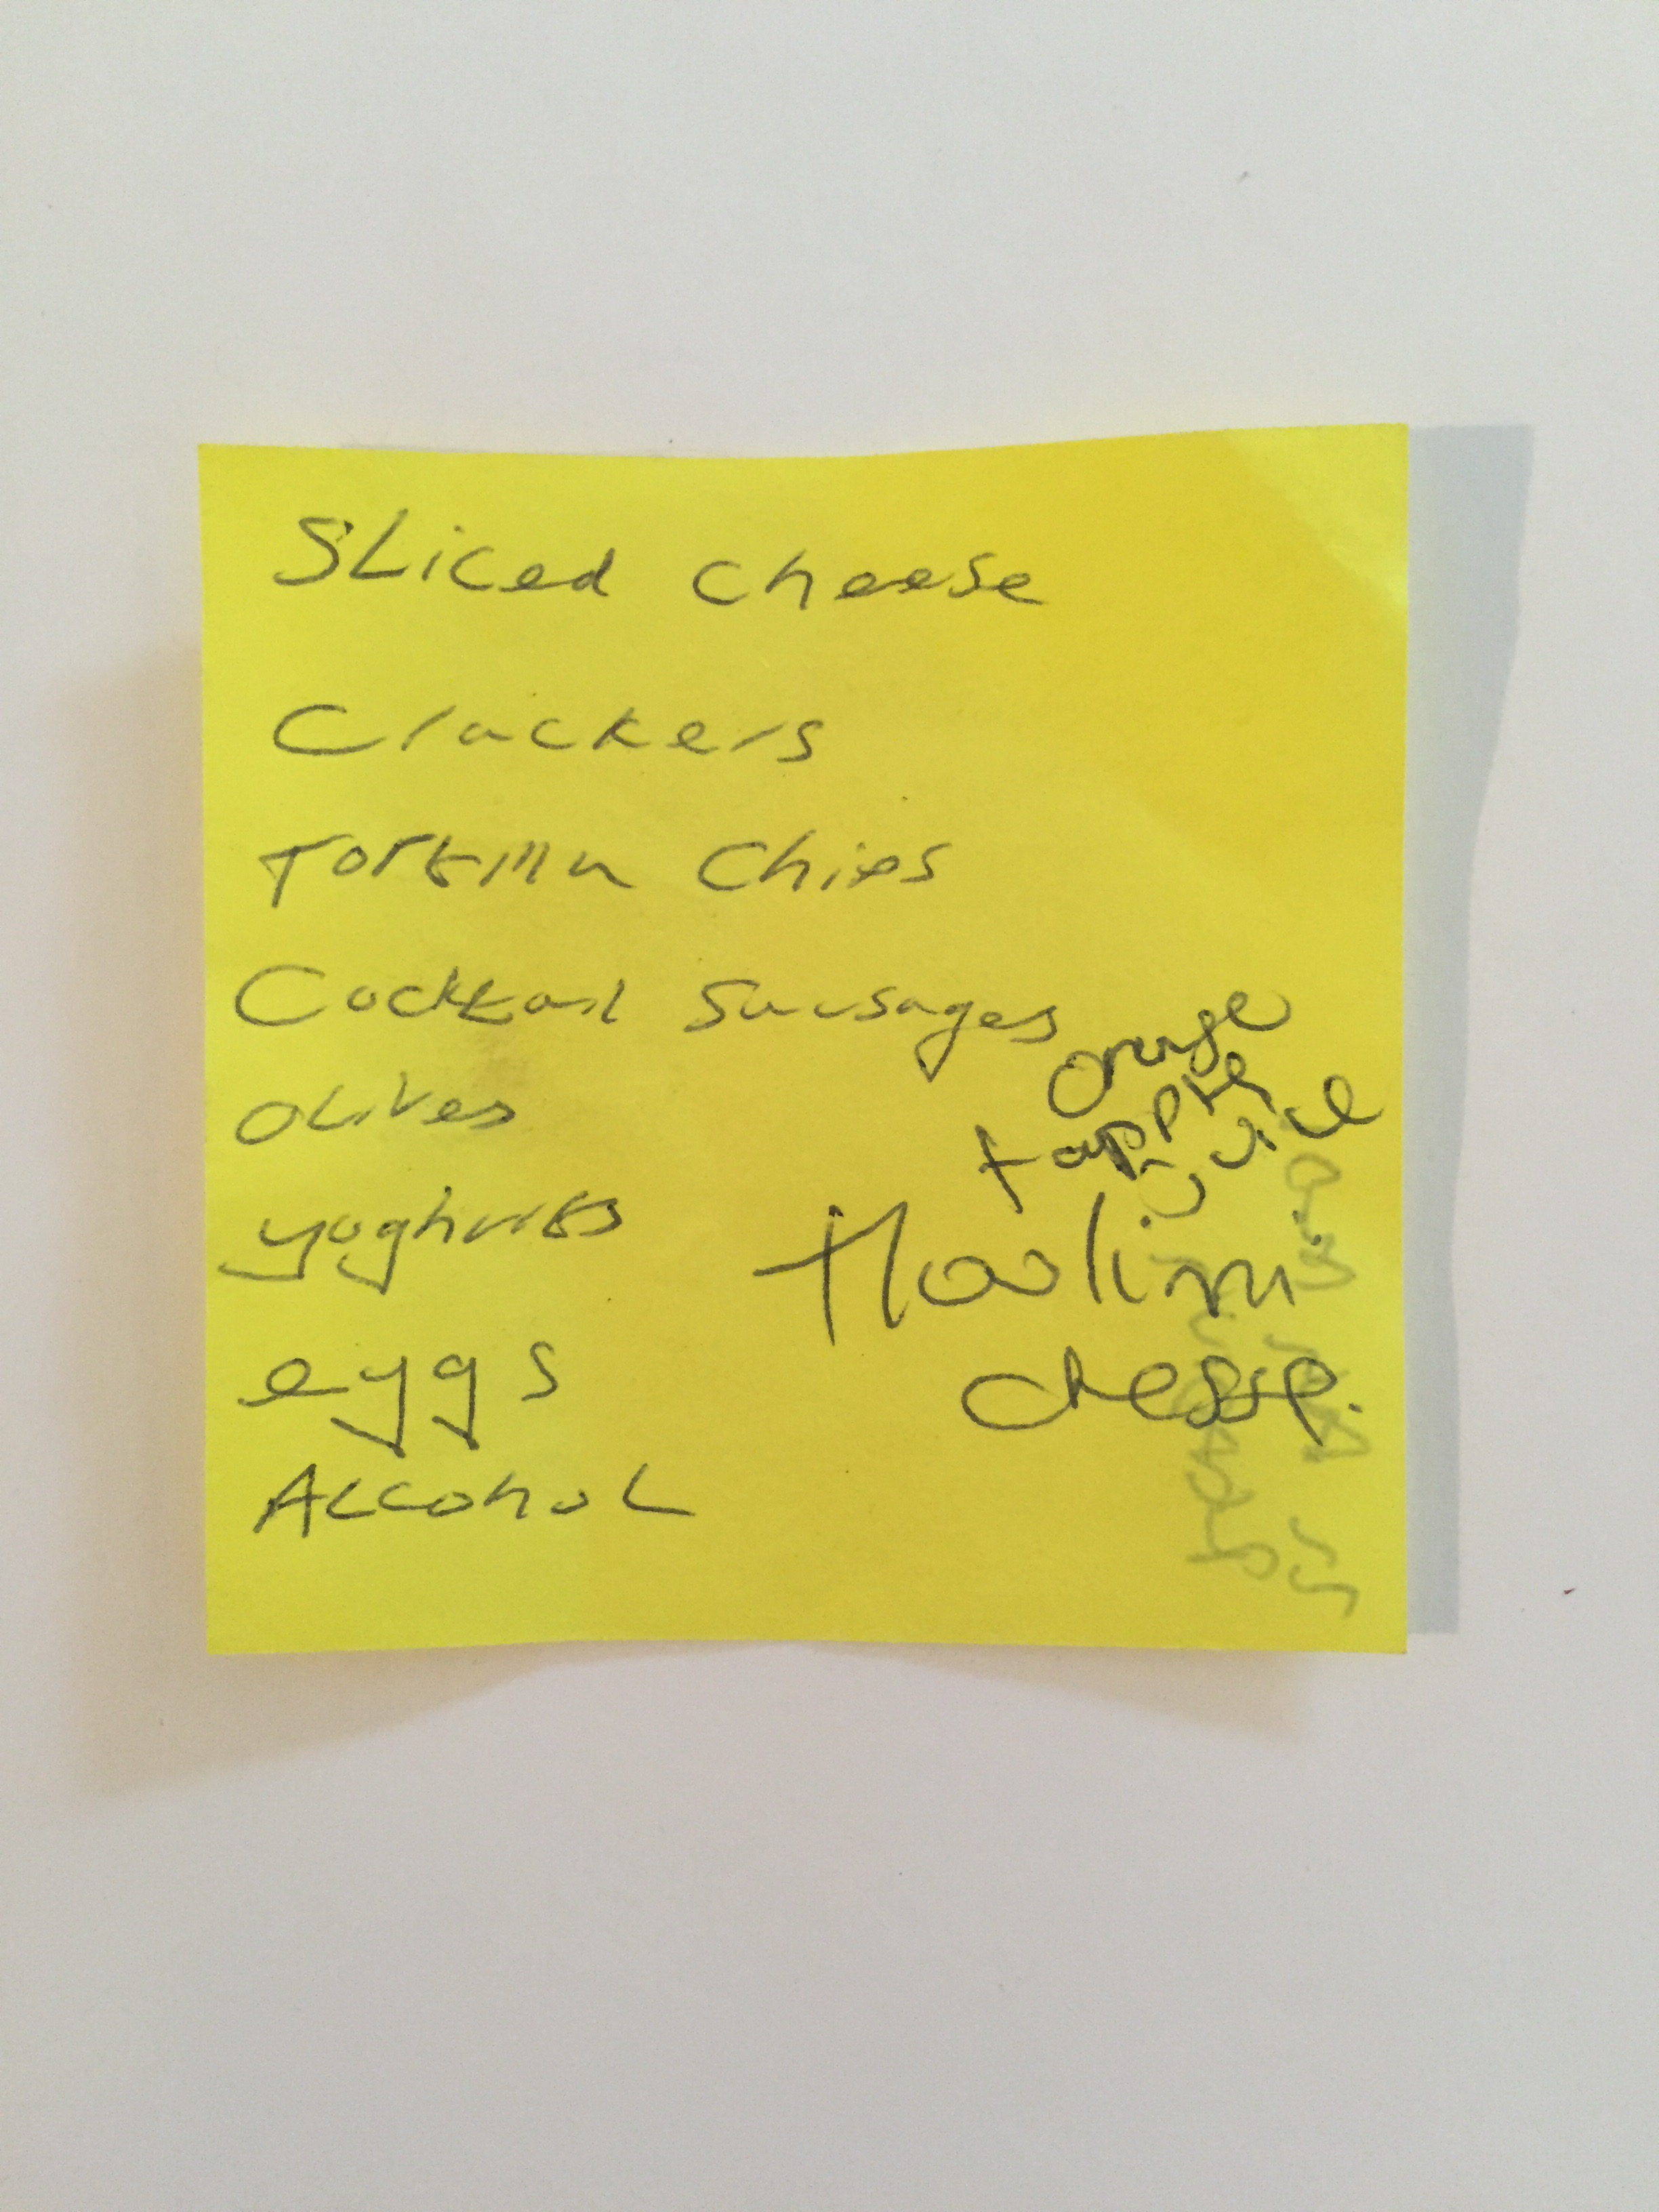 Sliced cheese
Crackers
Tortilla Chips
Cocktail Sausages
Olives
yoghurts
eggs
Alcohol
orange
+ apple
juice
Hoolimi
cheese.